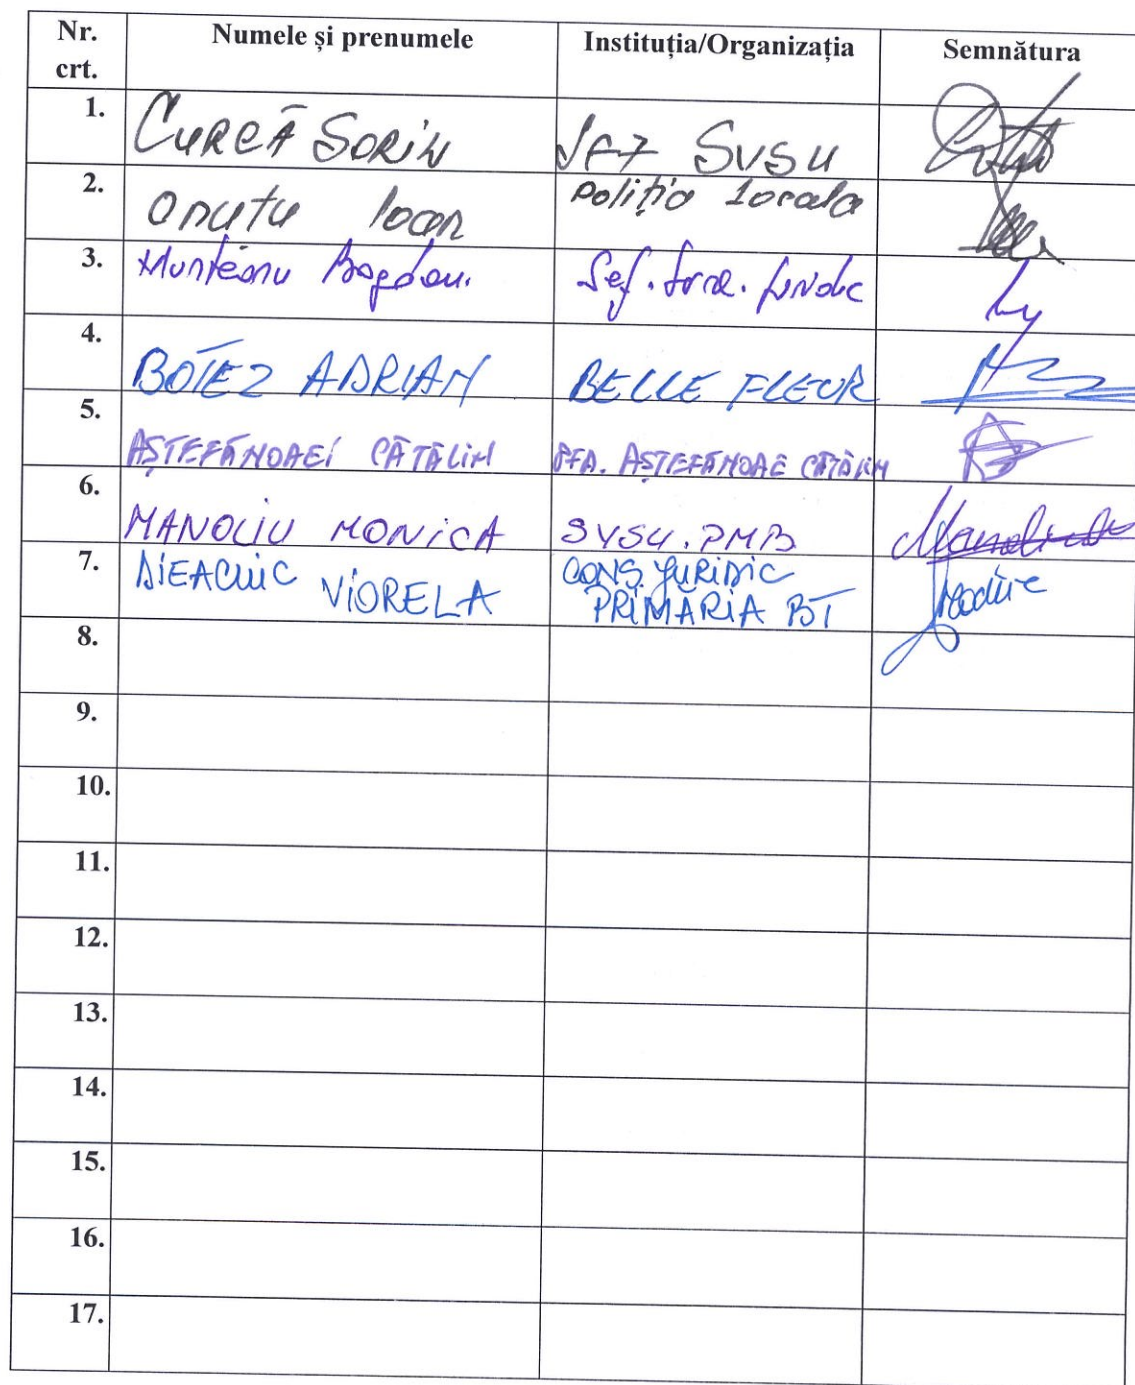 Nr. crt. Numele și prenumele Instituția/Organizația Semnătura
1. CURCĂ SORIN SVSU
2. Onutu Ioan Poliția Locala
3. Munteanu Bogdan. Sef.
4. BOTEZ ADRIAN BELLE FLEUR
5. AȘTEFĂNOAEI CĂTĂLIN PFA. AȘTEFĂNOAE CĂTĂLIN
6. MANOLIU MONICA SVSU. PMB Manoliu
7. VIORELA CONS. JURIDIC
PRIMĂRIA BT
8.
9.
10.
11.
12.
13.
14.
15.
16.
17.